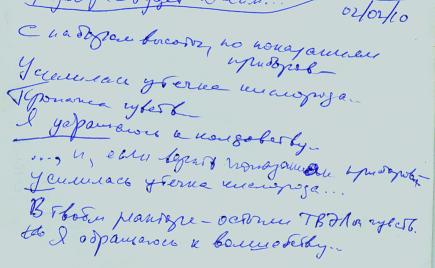 02/02/10
С набором высоты, по показаниям
приборов
Усилилась утечка кислорода..
Пропажа чувств
Я обращаюсь к колдовству..
..., и, если верить показаниям приборов,
Усилилась утечка кислорода...
В твоём реакторе – остыли ТВЭЛы чувств.
Я обращаюсь к волшебству..